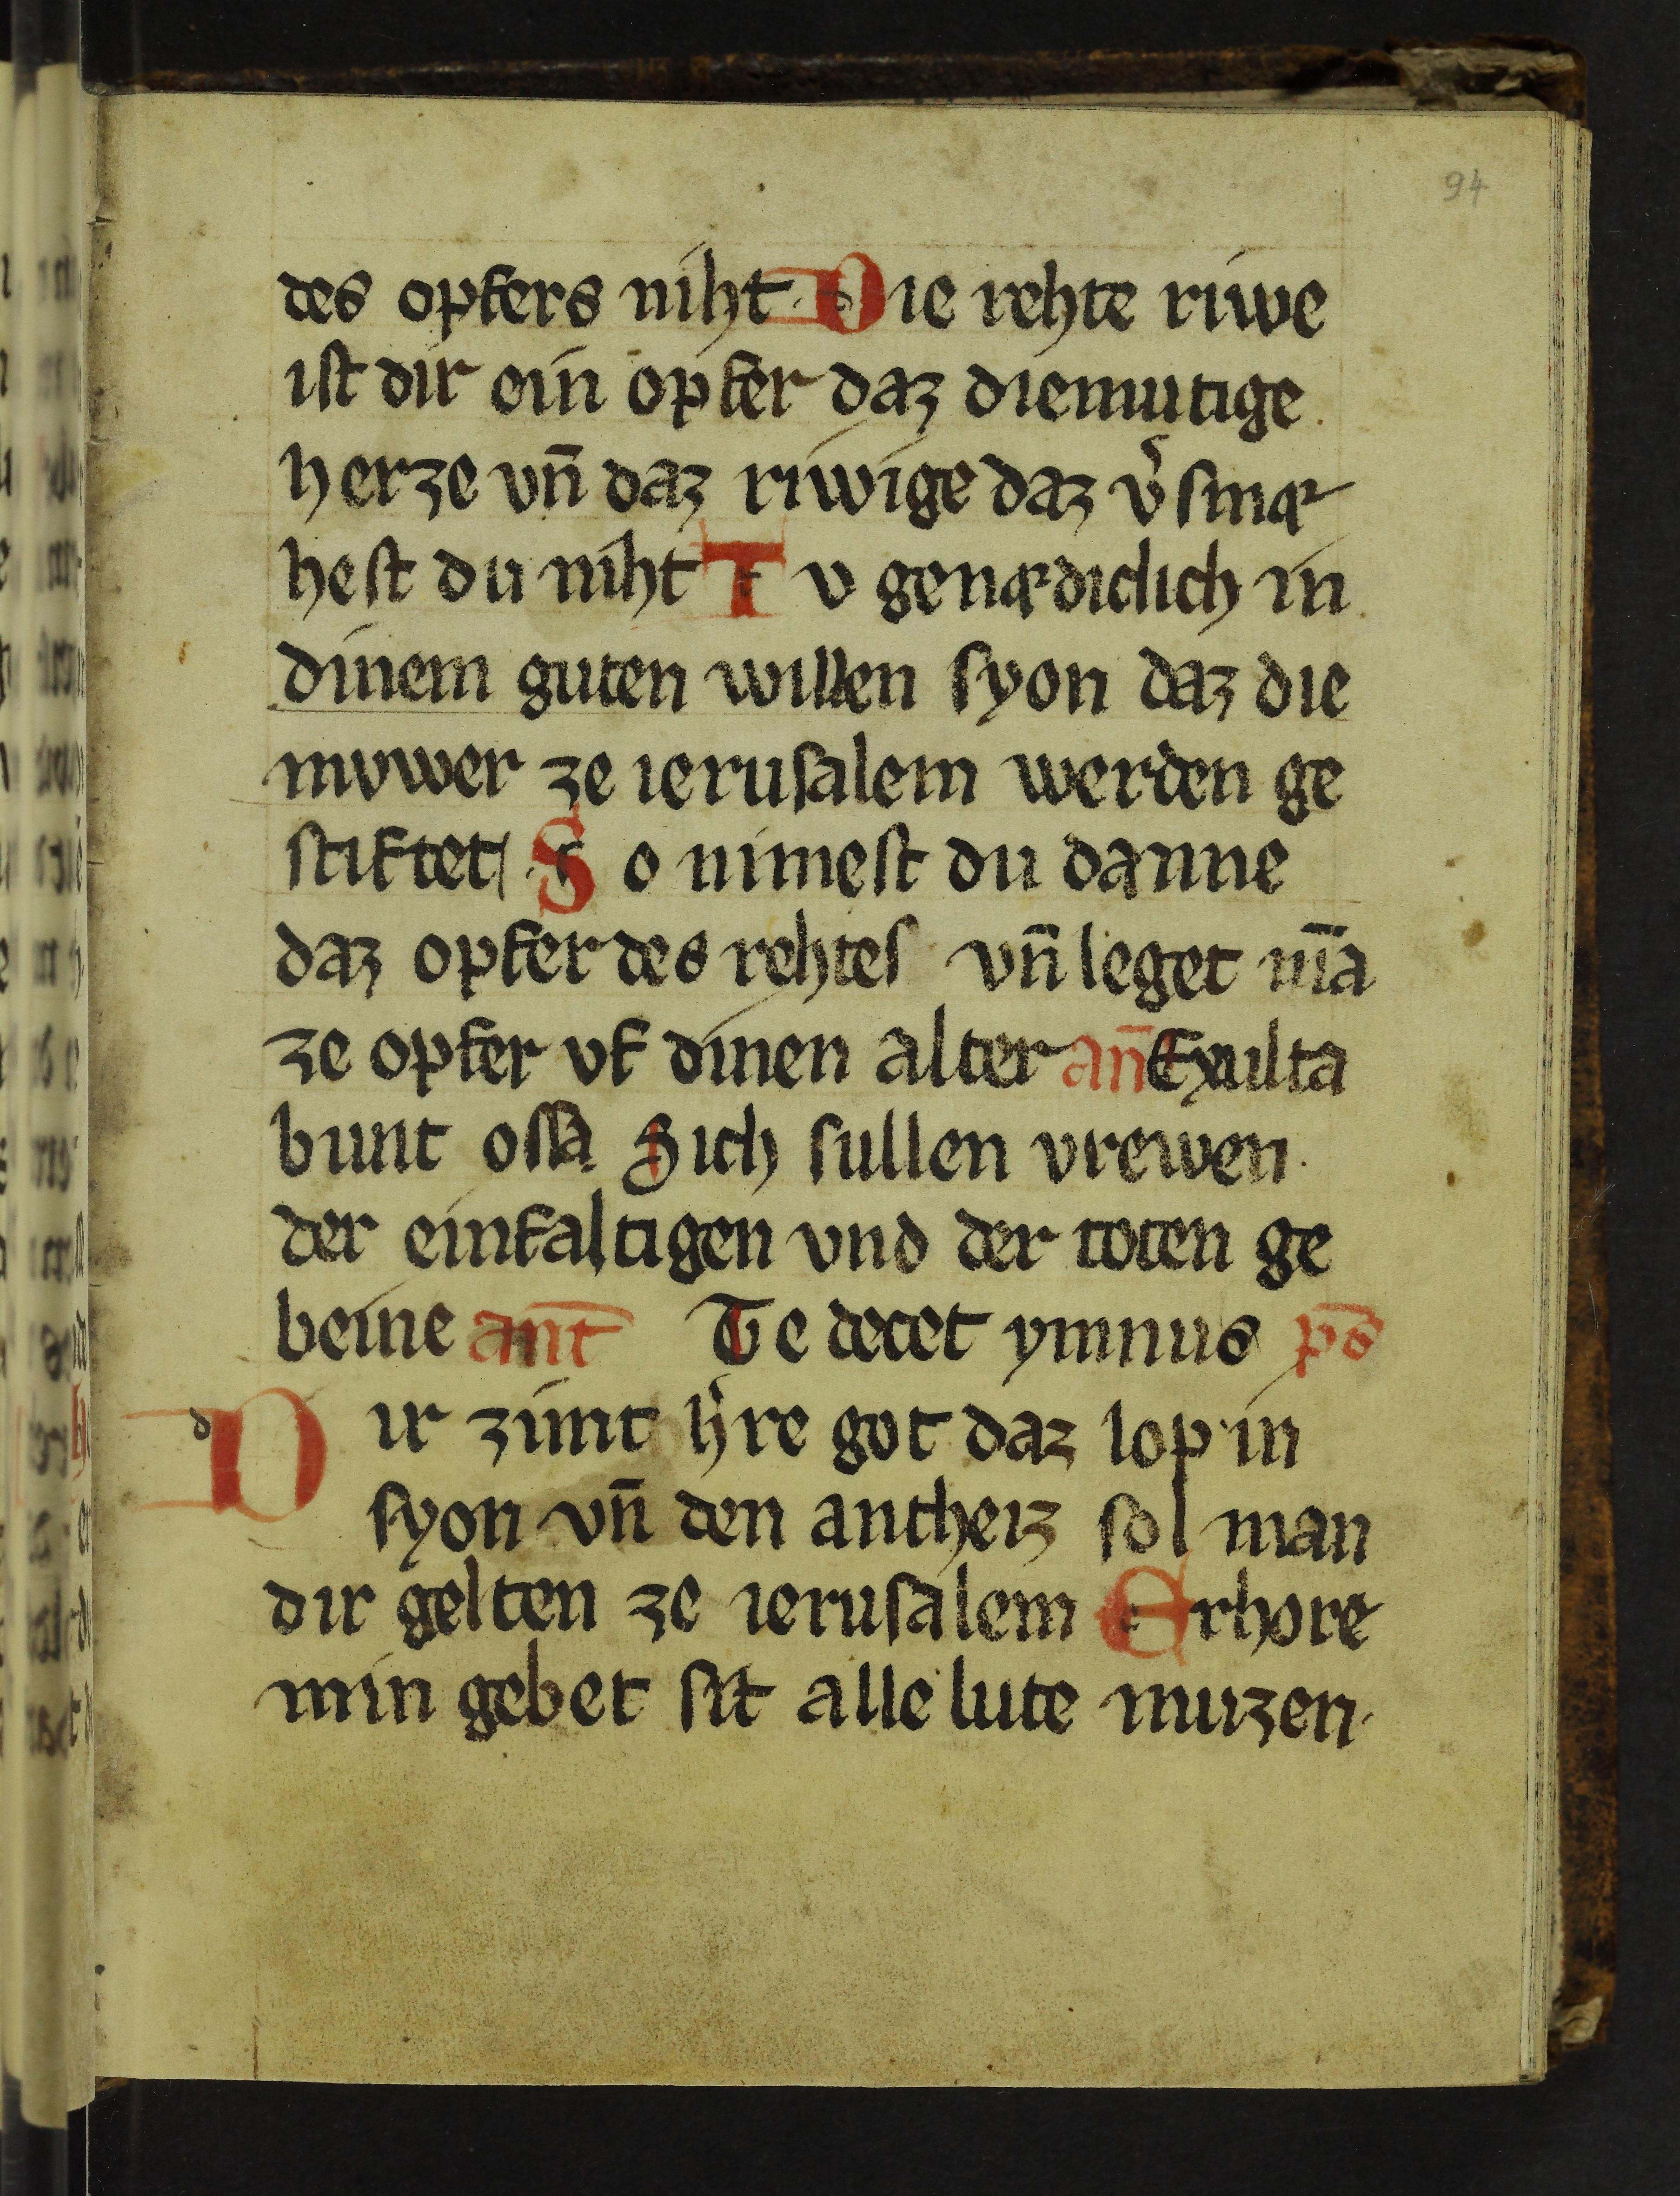 94
des opfers niht· Die rehte riwe
ist dir ein opfer daz diemutige
herze vn̄ daz riwige daz v͛smæ
hest du niht Tv genædiclich in
dinem guten willen syon daz die
mvwer ze ierusalem werden ge
stiftet So nimest du danne
daz opfer des rehtes vn̄ leget m̄a
ze opfer vf dinen alter an̄ Exulta
bunt ossa Sich sullen vrewen
der einfaltigen vnd der toten ge
beine ant̄ Te decet ymnus ps̄
Dir zimt h͛re got daz lop in
syon vn̄ den antheiz sol man
dir gelten ze ierusalem Erhore
min gebet sit alle lute muzen